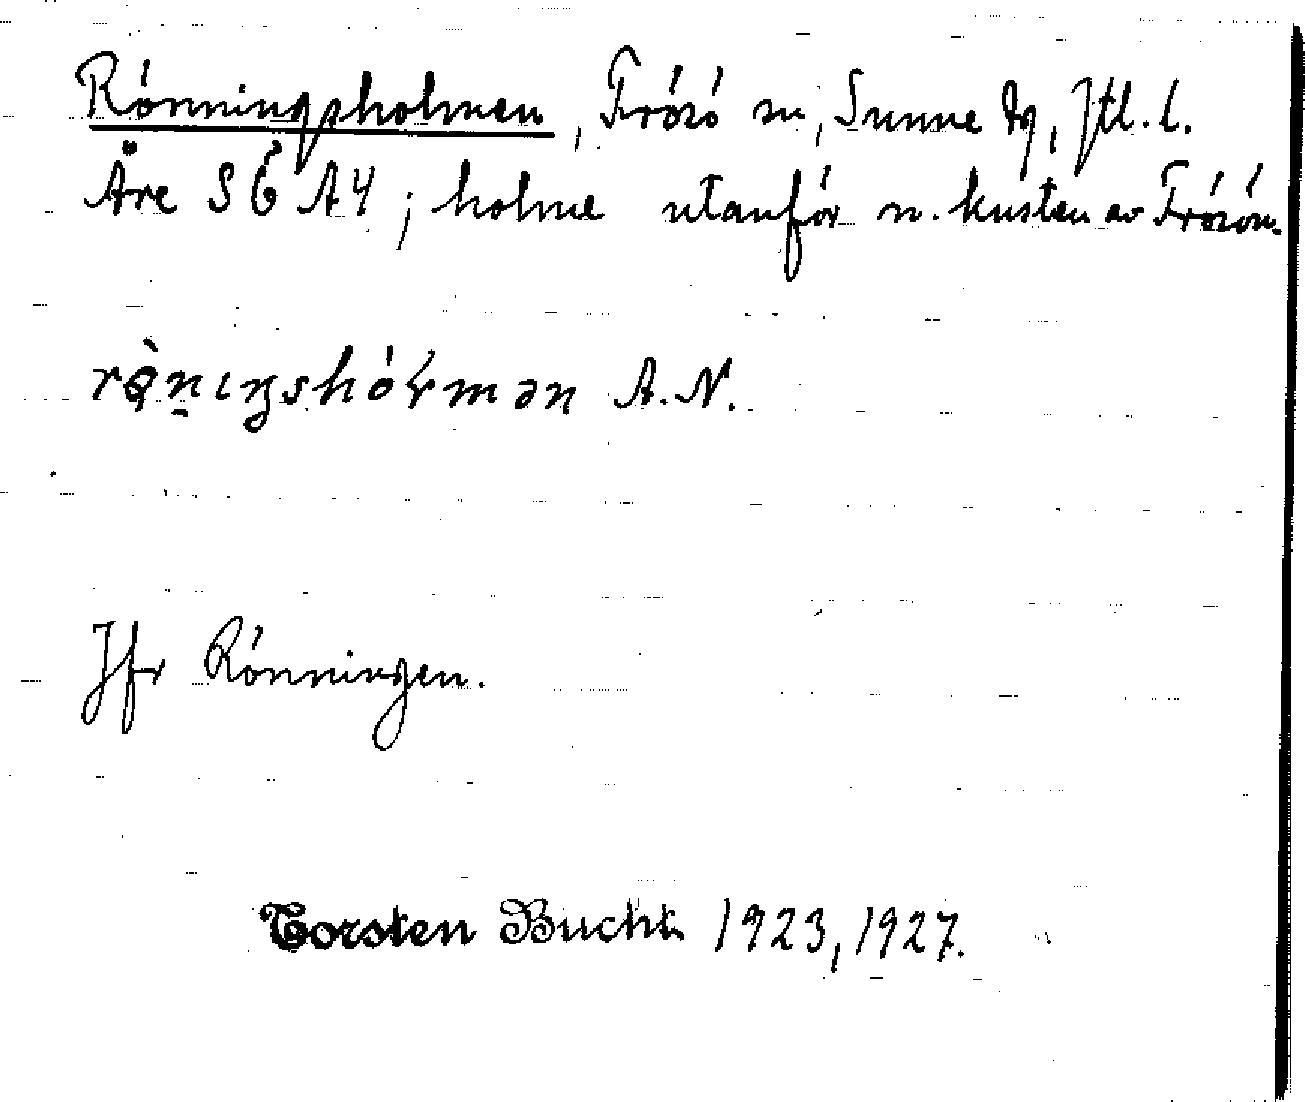 Rónningsholmen, Frósó sn, Sunne tg, Jtl. l.
Åre S Ó A4; holme utanfór n. kusten av Frósón.
rò̩n̠ıŋshóɽmən A.N.
Jfr Rónningen.
Torsten Bucht 1923, 1927.